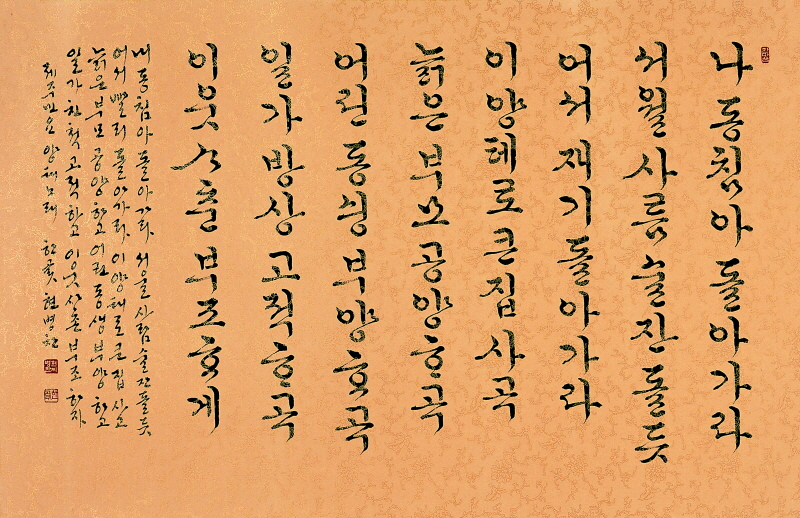 나동침아돌아가라
서월사름술잔돌듯
어서재기돌아가라
이양테로큰집사곡
늙은부모공양ᄒᆞ곡
어린동싕부양ᄒᆞ곡
일가방상고적ᄒᆞ곡
이웃ᄉᆞ춘부조ᄒᆞ게
내 동침아 돌아가라 서울 사람 술잔 돌듯
어서 빨리 돌아가라 이 양태로 큰 집 사고
늙은 부모 공양하고 어린 동생 부양하고
일가친척 고적하고 이웃사촌 부조하자
제주민요 양태노래 한곬 현병찬